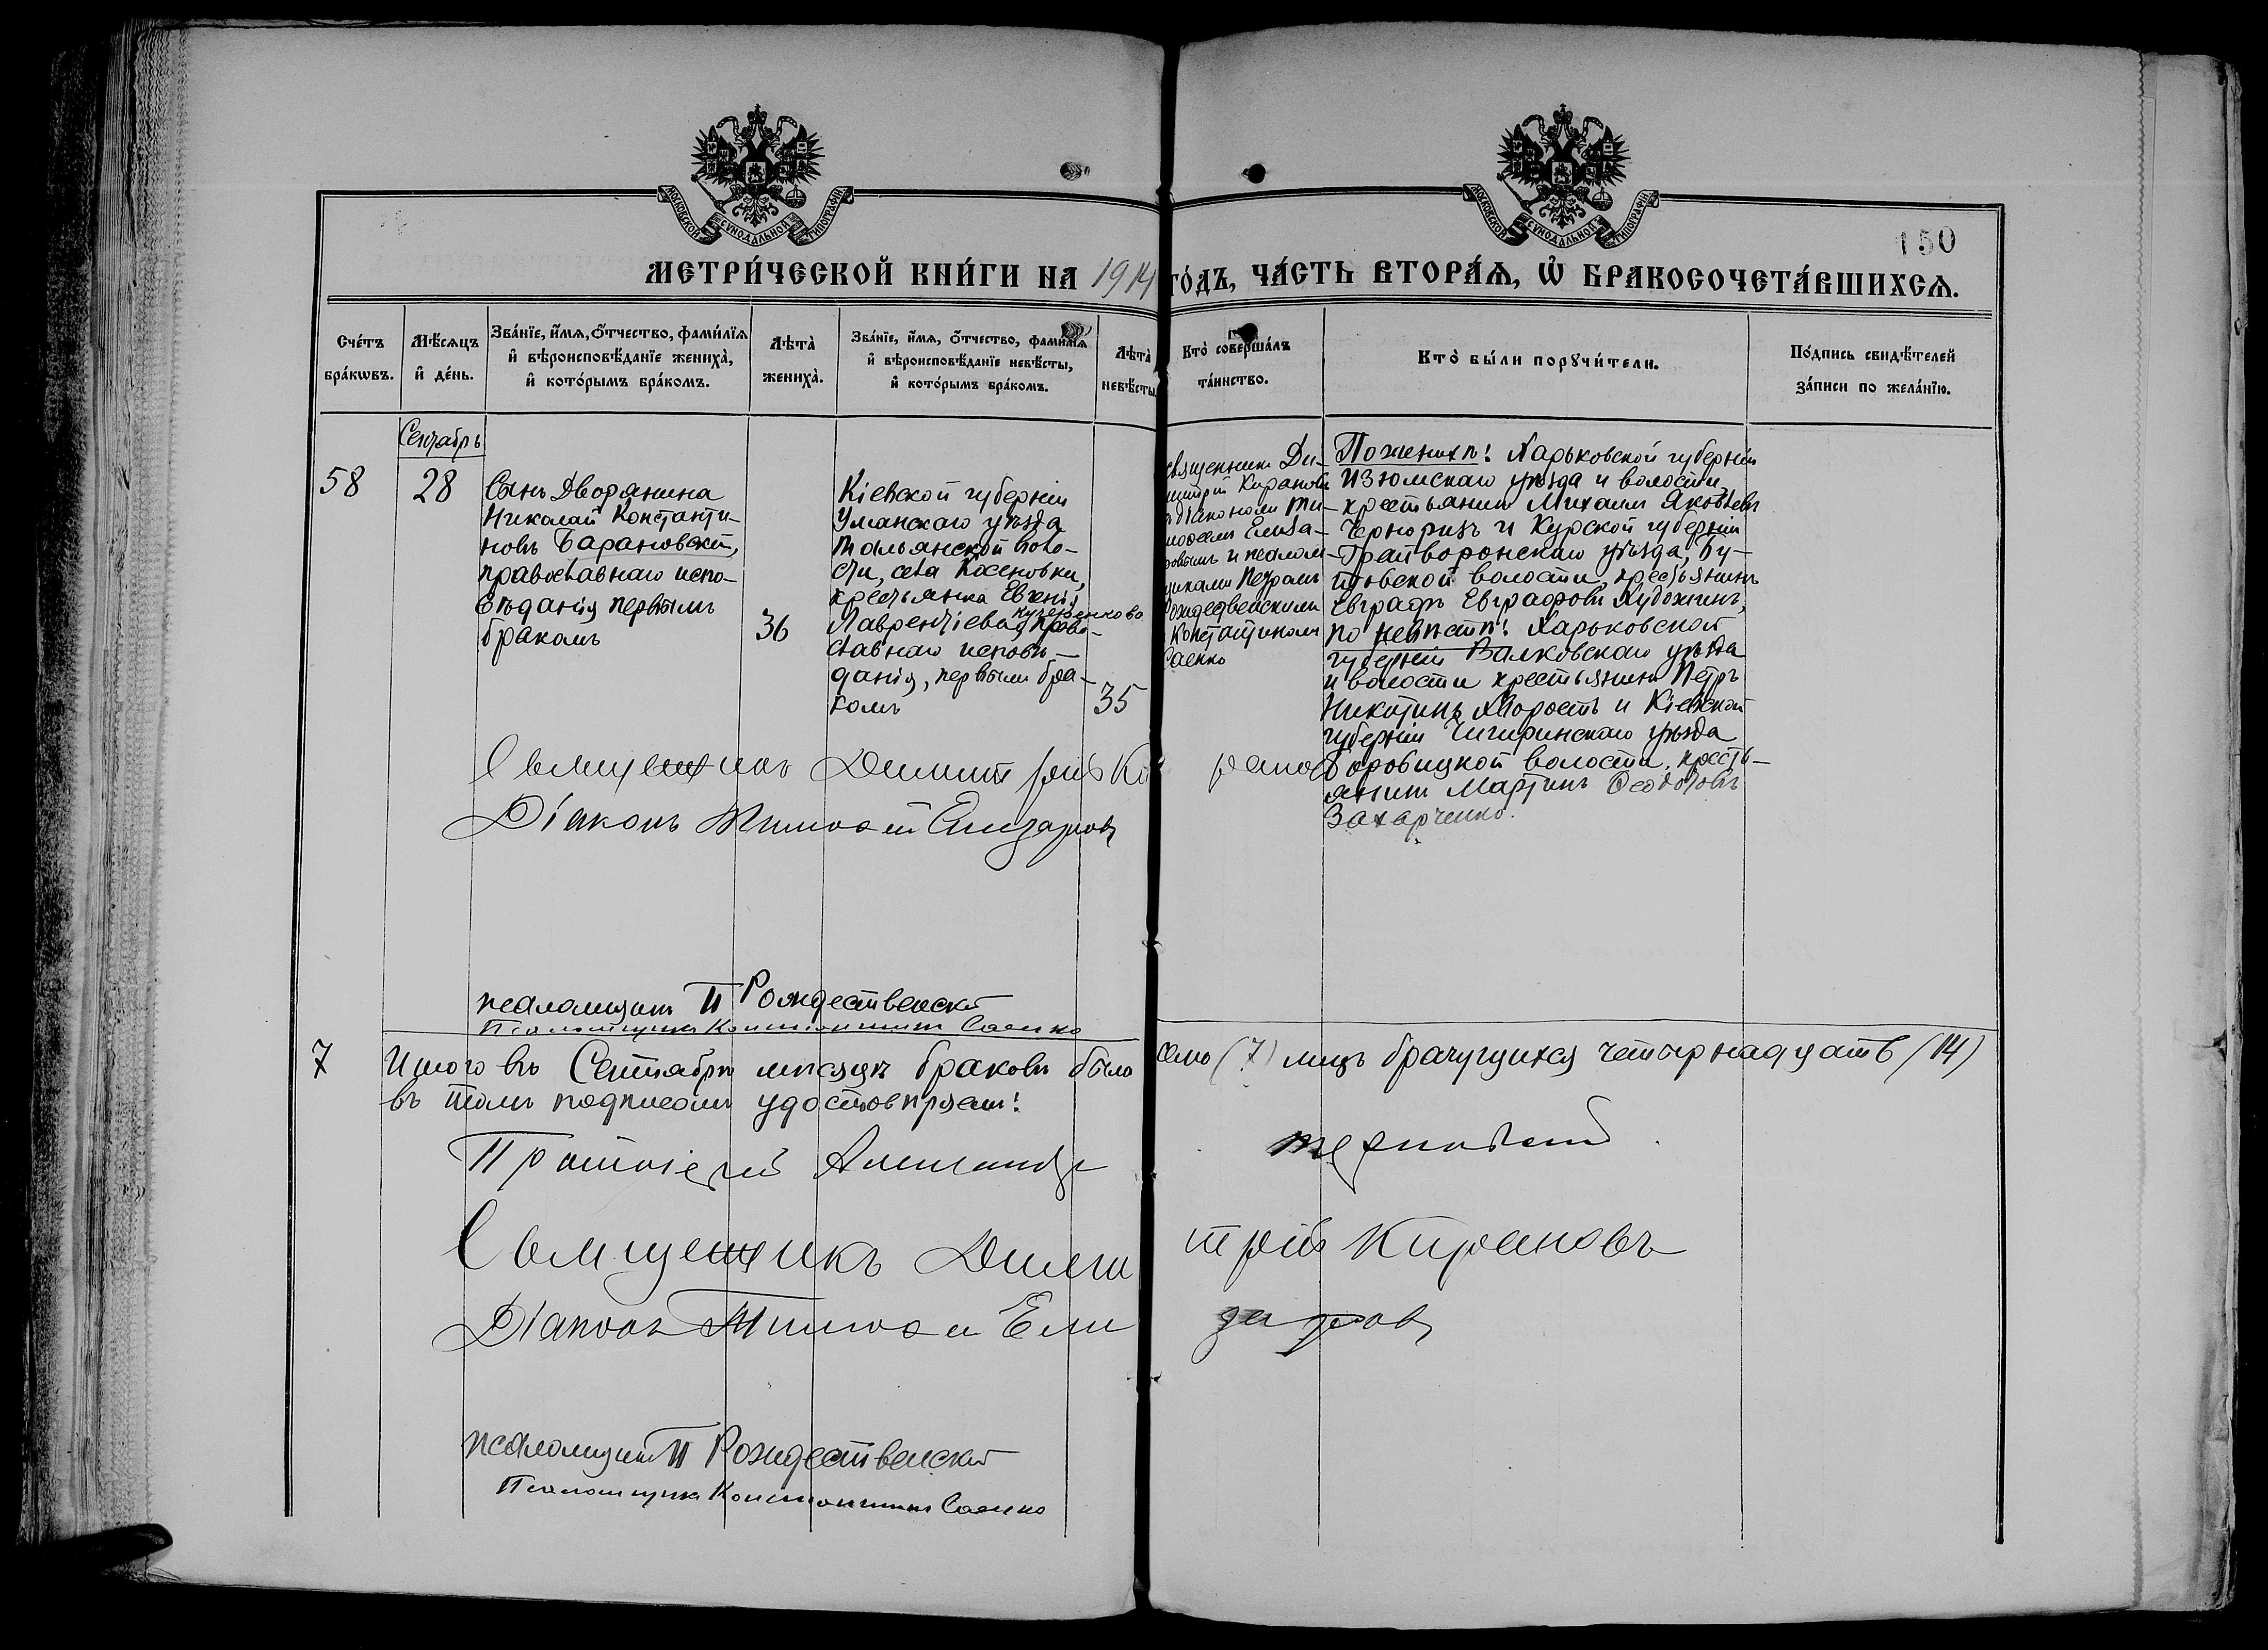 МОСКОВСКОЙ СѴНОДАЛЬНОЙ ТИПОГРАФІИ
МОСКОВСКОЙ СѴНОДАЛЬНОЙ ТИПОГРАФІИ
150
МЕТРИ́ЧЕСКОЙ КНИ́ГИ НА 1914 ГО́ДЪ, ЧА́СТЬ ВТОРА́Ѧ, Ѡ҆ БРАКОСОЧЕТА́ВШИХСѦ.
Сче́тъ
бра́кѡвъ.
Мѣ́сѧцъ
и҆ де́нь.
Зва́нїе, и҆́мѧ, о҆́тчество, фами́лїѧ
и҆ вѣроисповѣ́данїе жениха̀,
и҆ кото́рымъ бра́комъ.
Лѣта̀
жениха̀.
Зва́нїе, и҆́мѧ, о҆́тчество, фами́лїѧ
и҆ вѣроисповѣ́данїе невѣ́сты,
и҆ кото́рымъ бра́комъ.
Лѣта̀
невѣ́сты
Кто̀ соверша́лъ
та́инство.
Кто̀ бы́ли порꙋчи́тели.
По́дпись свидѣ́телей
за́писи по жела́нїю.
Сентябрь
58
28
Сынъ Дворянина
Николай Константи-
новъ Барановскій,
православнаго испо-
вѣданія первымъ
бракомъ
36
Кіевской губерніи
Уманскаго уѣзда
Тальянской воло-
сти, села Косеновки,
крестьянка Евгенія
Лаврентіева Право-
славнаго исповѣ-
данія, первымъ бра-
комъ
35
священникъ Ди-
митрій Кирановъ
съ діакономъ Ти-
мофеемъ Елиза-
ровымъ и псалом-
щиками Петромъ
Рождественскимъ
и Константиномъ
Саенко
По женихѣ: Харьковской губерніи
Изюмскаго уѣзда и волости,
крестьянинъ Михаилъ Яковлевъ
Черноризъ и Курской губерніи
Грайворонскаго уѣзда, Бу-
товской волости, крестьянинъ
Евграфъ Евграфовъ Художинъ,
по невѣстѣ: Харьковской
губерніи Валковскаго уѣзда
и волости крестьянинъ Петръ
Никитинъ Хворостъ и Кіевской
губерніи Чигиринскаго уѣзда
Боровицкой волости, кресть-
янинъ Мартинъ Ѳеодотовъ
Захарченко.
Священникъ Димитрій Кирановъ
Діаконъ Тимофей Елизаровъ
псаломщикъ П Рождественскій
Псаломщикъ Константинъ Саенко
7
Итого въ Сентябрѣ мѣсяцѣ браковъ было семь (7) лицъ брачущихся четырнадцать (14)
въ томъ подписомъ удостовѣряемъ:
Протоіерей Александръ Терновскій.
Священникъ Димитрій Кирановъ
Діаконъ Тимофей Елизаровъ
псаломщикъ П Рождественскій
Псаломщикъ Константинъ Саенко